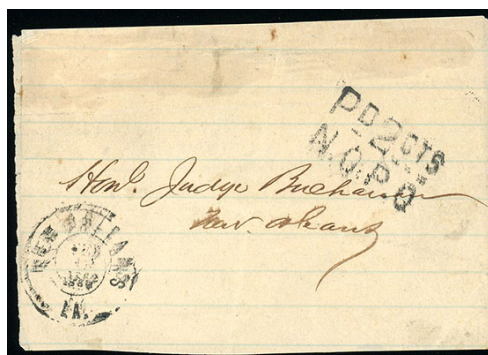 PD 2 CTS
N.O.P.O
Honl. Judge Buchanan
New Orleans
NEW ORLEANS
LA.